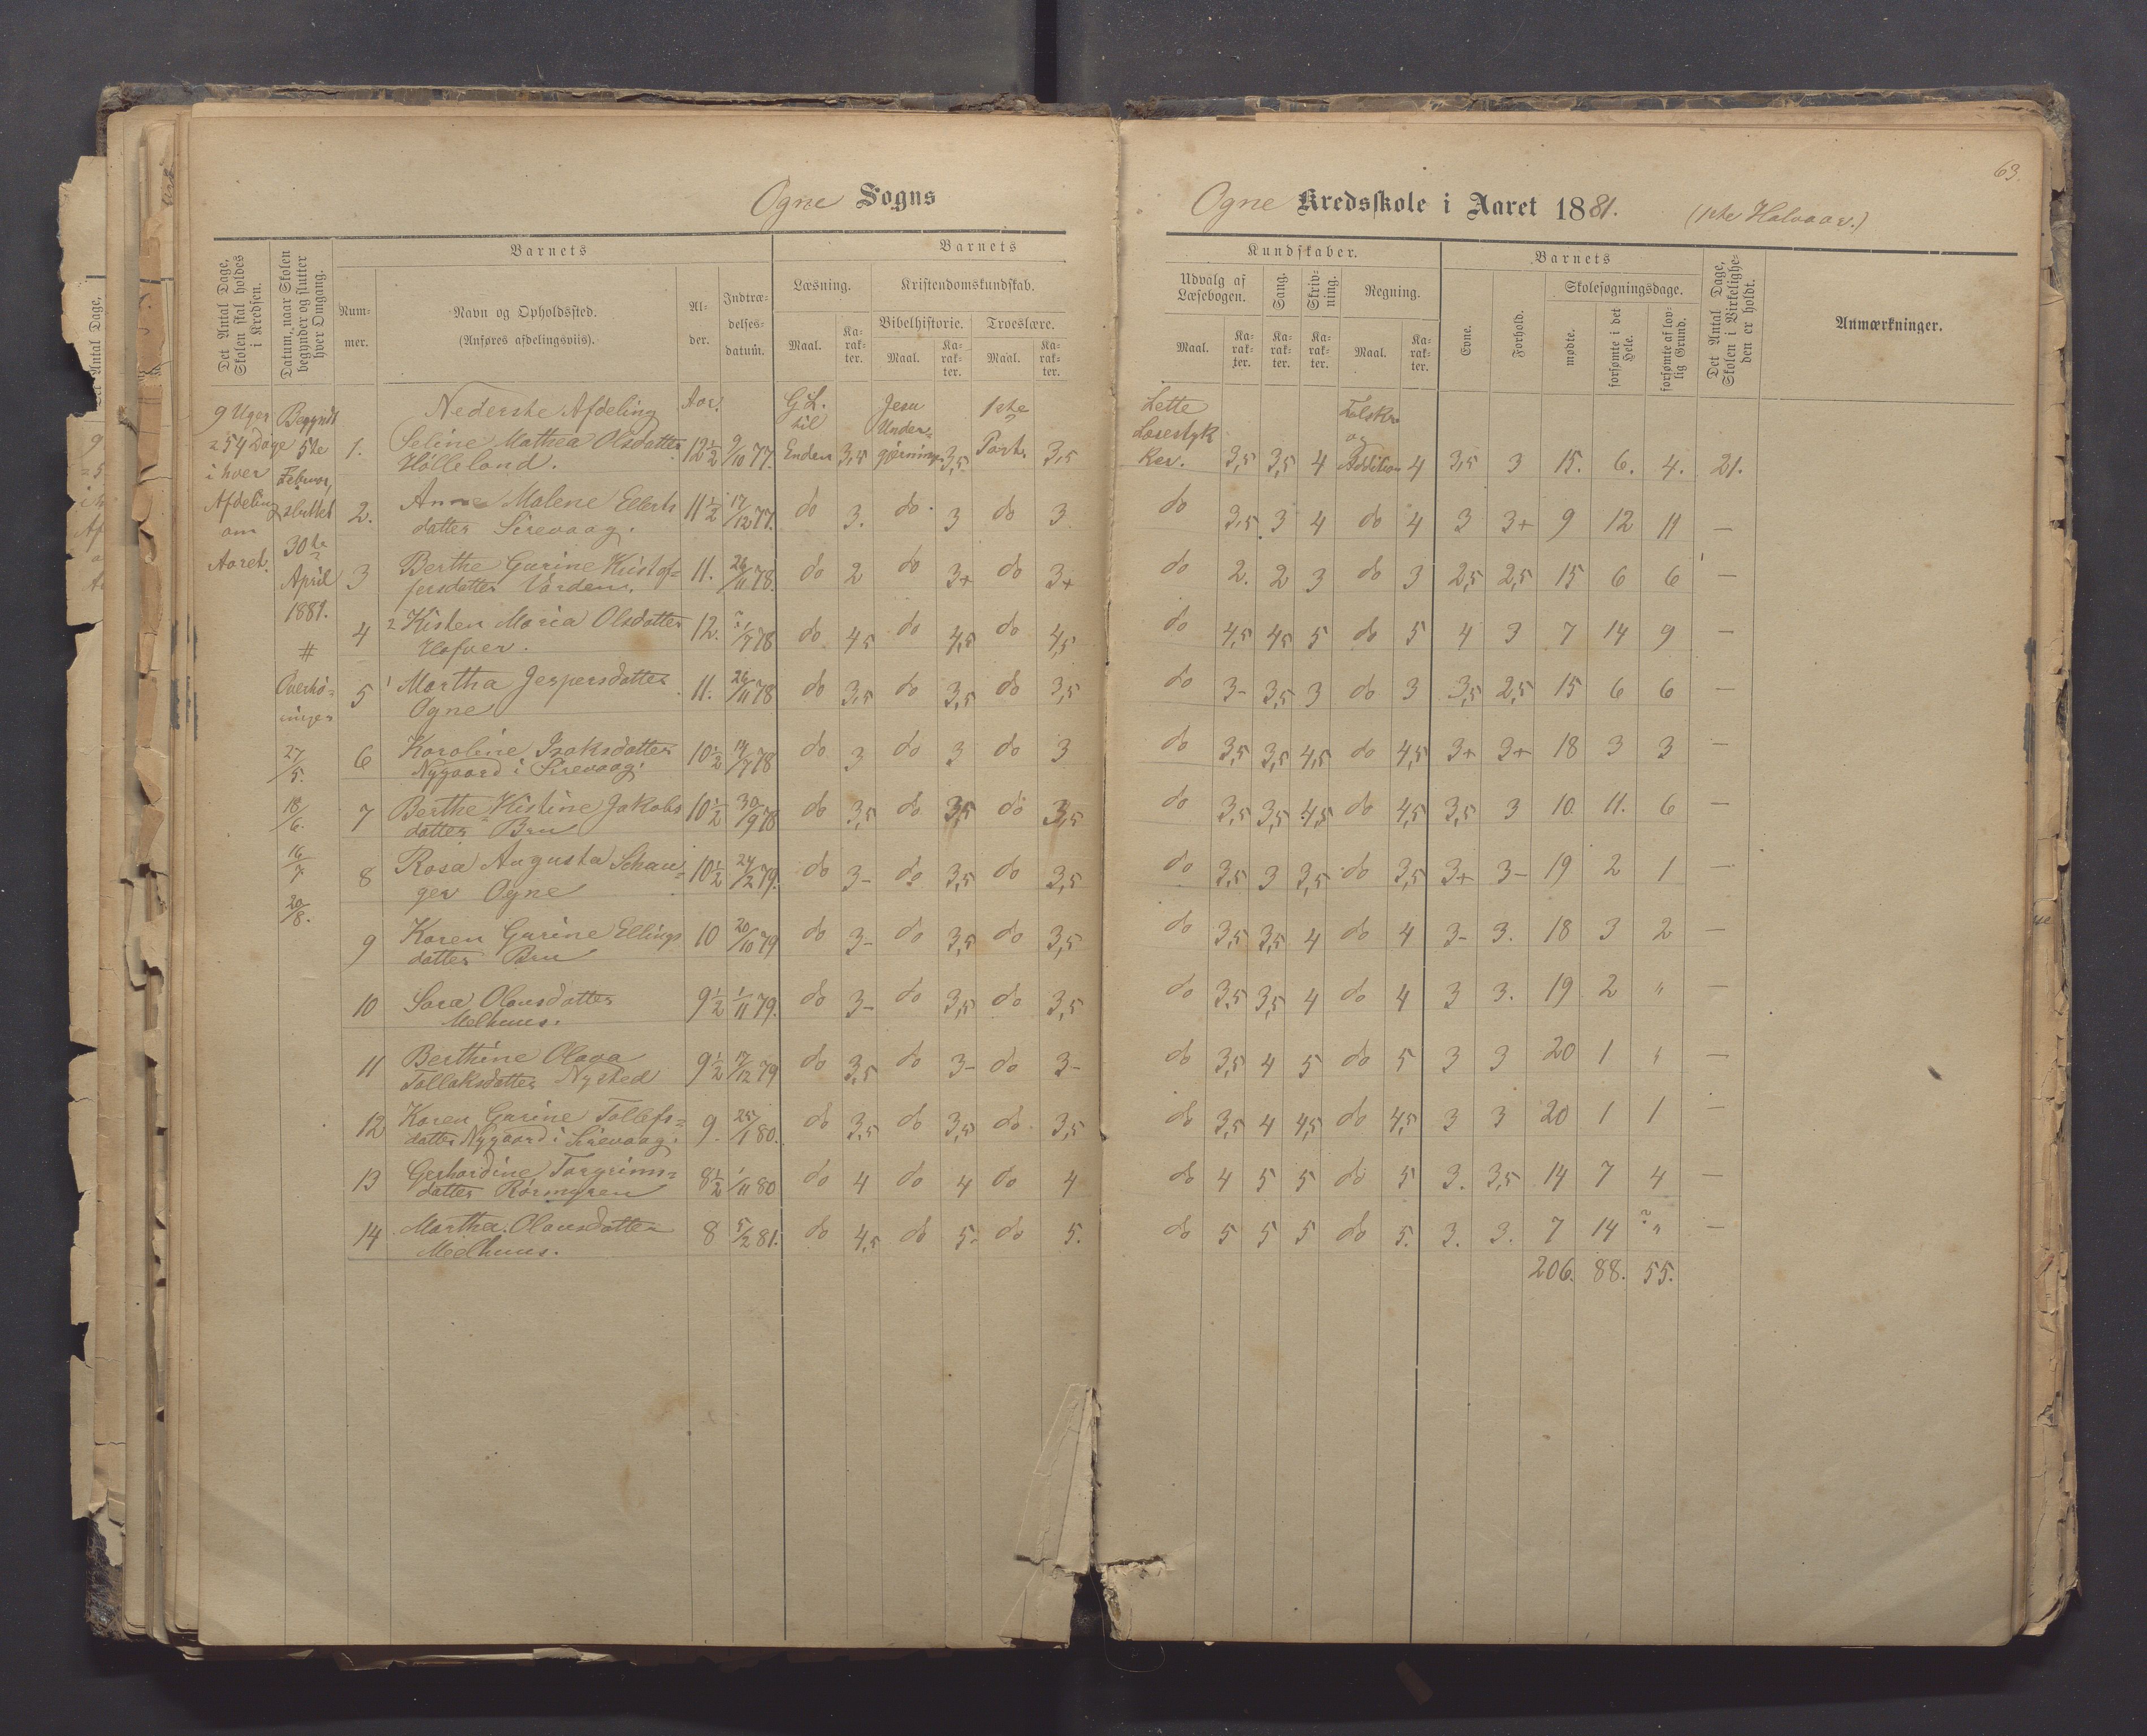 63.
Ogne Sogns
Ogne Kredsskole i Aaret 1881. (1ste Halvaar.)
Det Antal Dage, Skolen skal holdes i Kredsen.
Datum, naar Skolen begynder og slutter hver Omgang.
Barnets
Num-
mer.
Navn og Opholdssted.
(Anføres afdelingsviis).
Al-
der.
Indtræ-
delses-
datum.
Barnets
Læsning.
Maal.
Ka-
rak-
ter.
Kristendomskundskab.
Bibelhistorie.
Maal.
Ka-
rak-
ter.
Troeslære.
Maal.
Ka-
rak-
ter.
Kundskaber.
Udvalg af
Læsebogen.
Maal.
Ka-
rak-
ter.
Sang.
Ka-
rak-
ter.
Skriv-
ning.
Ka-
rak-
ter.
Regning.
Maal.
Ka-
rak-
ter.
Barnets
Evne.
Forhold.
Skolesøgningsdage.
mødte.
forsømte i det Hele.
forsømte af lov-
lig Grund.
Det Antal Dage, Skolen i Virkelighe-
den er holdt.
Anmærkninger.
9 Uger
= 54 Dage
i hver
Afdeling
om
Aaret.
Begyndt
5te
Februar,
sluttet
30te
April
1881.
#
Overhø-
inger
27/5.
18/6.
16/7.
20/8.
Nederste Afdeling
Aar.
1. Seline Mathea Olsdatter Hølleland. 12½ 9/10 77. GL. til Enden 3,5 Jesu Undergjerninger 3,5 1ste Part. 3,5 Lette Læsestykker. 3,5 3,5 4 Talskr. og Addition 4 3,5 3 15. 6. 4. 21.
2. Anne Malene Ellerts datter Sirevaag. 11½ 17/12 77. do 3. do 3 do 3 do 3,5 3 4 do 4 3 3+ 9 12 11 —
3 Berthe Gurine Kristoffersdatter Varden. 11. 26/11 78. do 2 do 3+ do 3+ do 2. 2 3 do 3 2,5 2,5 15 6 6 —
4 2 Kisten Maria Olsdatter Hafver. 12. /7 78 do 4,5 do 4,5 do 4,5 do 4,5 4,5 5 do 5 4 3 7 14 9 —
5 1 Martha Jespersdatter Ogne 11. 26/11 78 do 3,5 do 3,5 do 3,5 do 3- 3,5 3 do 3 3,5 2,5 15 6 6 —
6 Karoline Isaksdatter Nygaard i Sirevaag. 10½ 14/7 78 do 3 do 3 do 3 do 3,5 3,5 4,5 do 4,5 3+ 3+ 18 3 3 —
7 Berthe Kistine Jakobs datter Bru 10½ 30/9 78 do 3,5 do 3,5 do 3,5 do 3,5 3,5 4,5 do 4,5 3,5 3 10 11. 6 —
8 Rosa Augusta Schanger Ogne 10½ 24/2 79. do 3- do 3,5 do 3,5 do 3,5 3 3,5 do 3,5 3+ 3- 19 2 1 —
9 Karen Gurine Ellings datter Bru 10 20/10 79 do 3- do 3,5 do 3,5 do 3,5 3,5 4 do 4 3- 3. 18 3 2 —
10 Sara Olausdatter Melhuus. 9½ 1/11 79. do 3- do 3,5 do 3,5 do 3,5 3,5 4 do 4 3 3. 19 2 " —
11 Berthine Olava Tollaksdatter Nysted 9½ 17/12 79 do 3,5 do 3- do 3- do 3,5 4 5 do 5 3 3 20 1 " —
12 Karen Gurine Tollefs= datter Nygaard i Sirevaag. 9. 25/1 80. do 3,5 do 3,5 do 3,5 do 3,5 4 4,5 do 4,5 3 3 20 1 1 —
13 Gerhardine Torgrims= datter Rörmyren 8½ 1/11 80 do 4 do 4 do 4 do 4 5 5 do 5 3. 3,5 14 7 4 —
14 Martha Olausdatter Melhuus. 8 5/2 81. do 4,5 do 5- do 5. do 5 5 5 do 5. 3. 3. 7 14 ? " —
206. 88. 55.